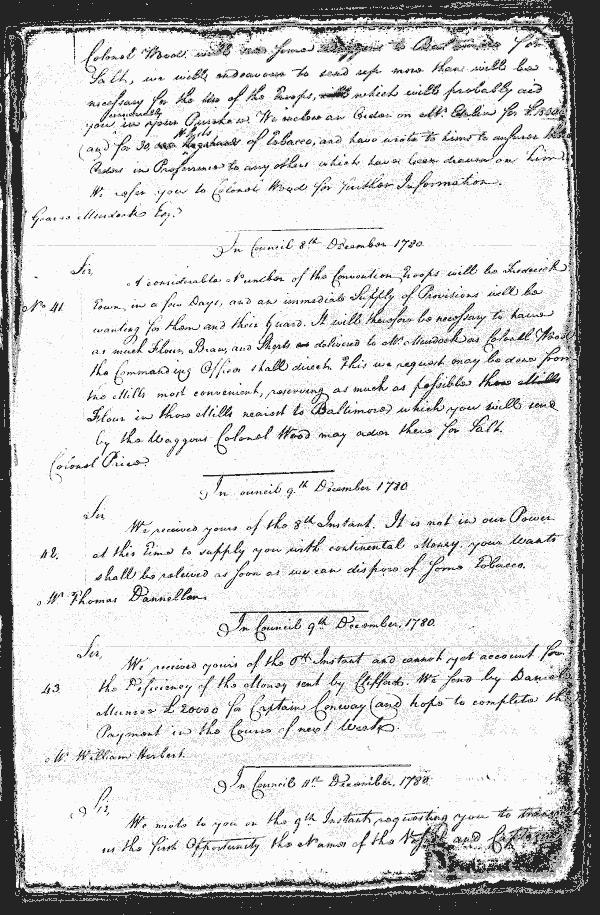 Colonel Wood will send some Waggons to Baltimore for
Salt, we will endeavour to send up more than will be
necessary for the use of the Troops, which will probably aid
you in your Purchases. We inclose an Order on Mr.
(and for 30 Hhds of Tobacco, and have wrote to him to answer
Orders in Preference to any others which have been drawn on him
We refer you to Colonel Wood for further Information.
George Murdock Esqr.
In Council 8th December 1780
Sir,
A considerable Number of the Convention Troops will be Frederick
No 41 Town in a few Days, and an immediate Supply of Provisions will be
wanting for them and their Guard. It will therefore be necessary to have
as much Flour, Bran, and Shorts delivered to Mr Murdock as Colonel Wood
the Commanding Officer shall direct. This we request may be done from
the Mills most convenient, reserving as much as possible
Flour in those Mills nearest to Baltimore which you will send
by the Waggons Colonel Wood may order there for Salt.
Colonel Price.
In ouncil 9th December 1780
Sir
We received yours of the 8th Instant. It is not in our Power
42. at this time to supply you with continental Money. your Wants
shall be releived as soon as we can dispose of some Tobacco.
Mr Thomas Donnellan
In Council 9th December, 1780.
Sir,
We received yours of the 6th Instant and cannot yet account for
43 the Deficiency of the Money sent by Clifford. We send by Daniel
Munroe £20000 for Captain Conway (and hope to complete the
Payment in the Course of next Week.
Mr. William Herbert.
In Council 11th December 1780
Sir,
We wrote to you on the 9th Instant, requesting you to
us the first Opportunity the Names of the and